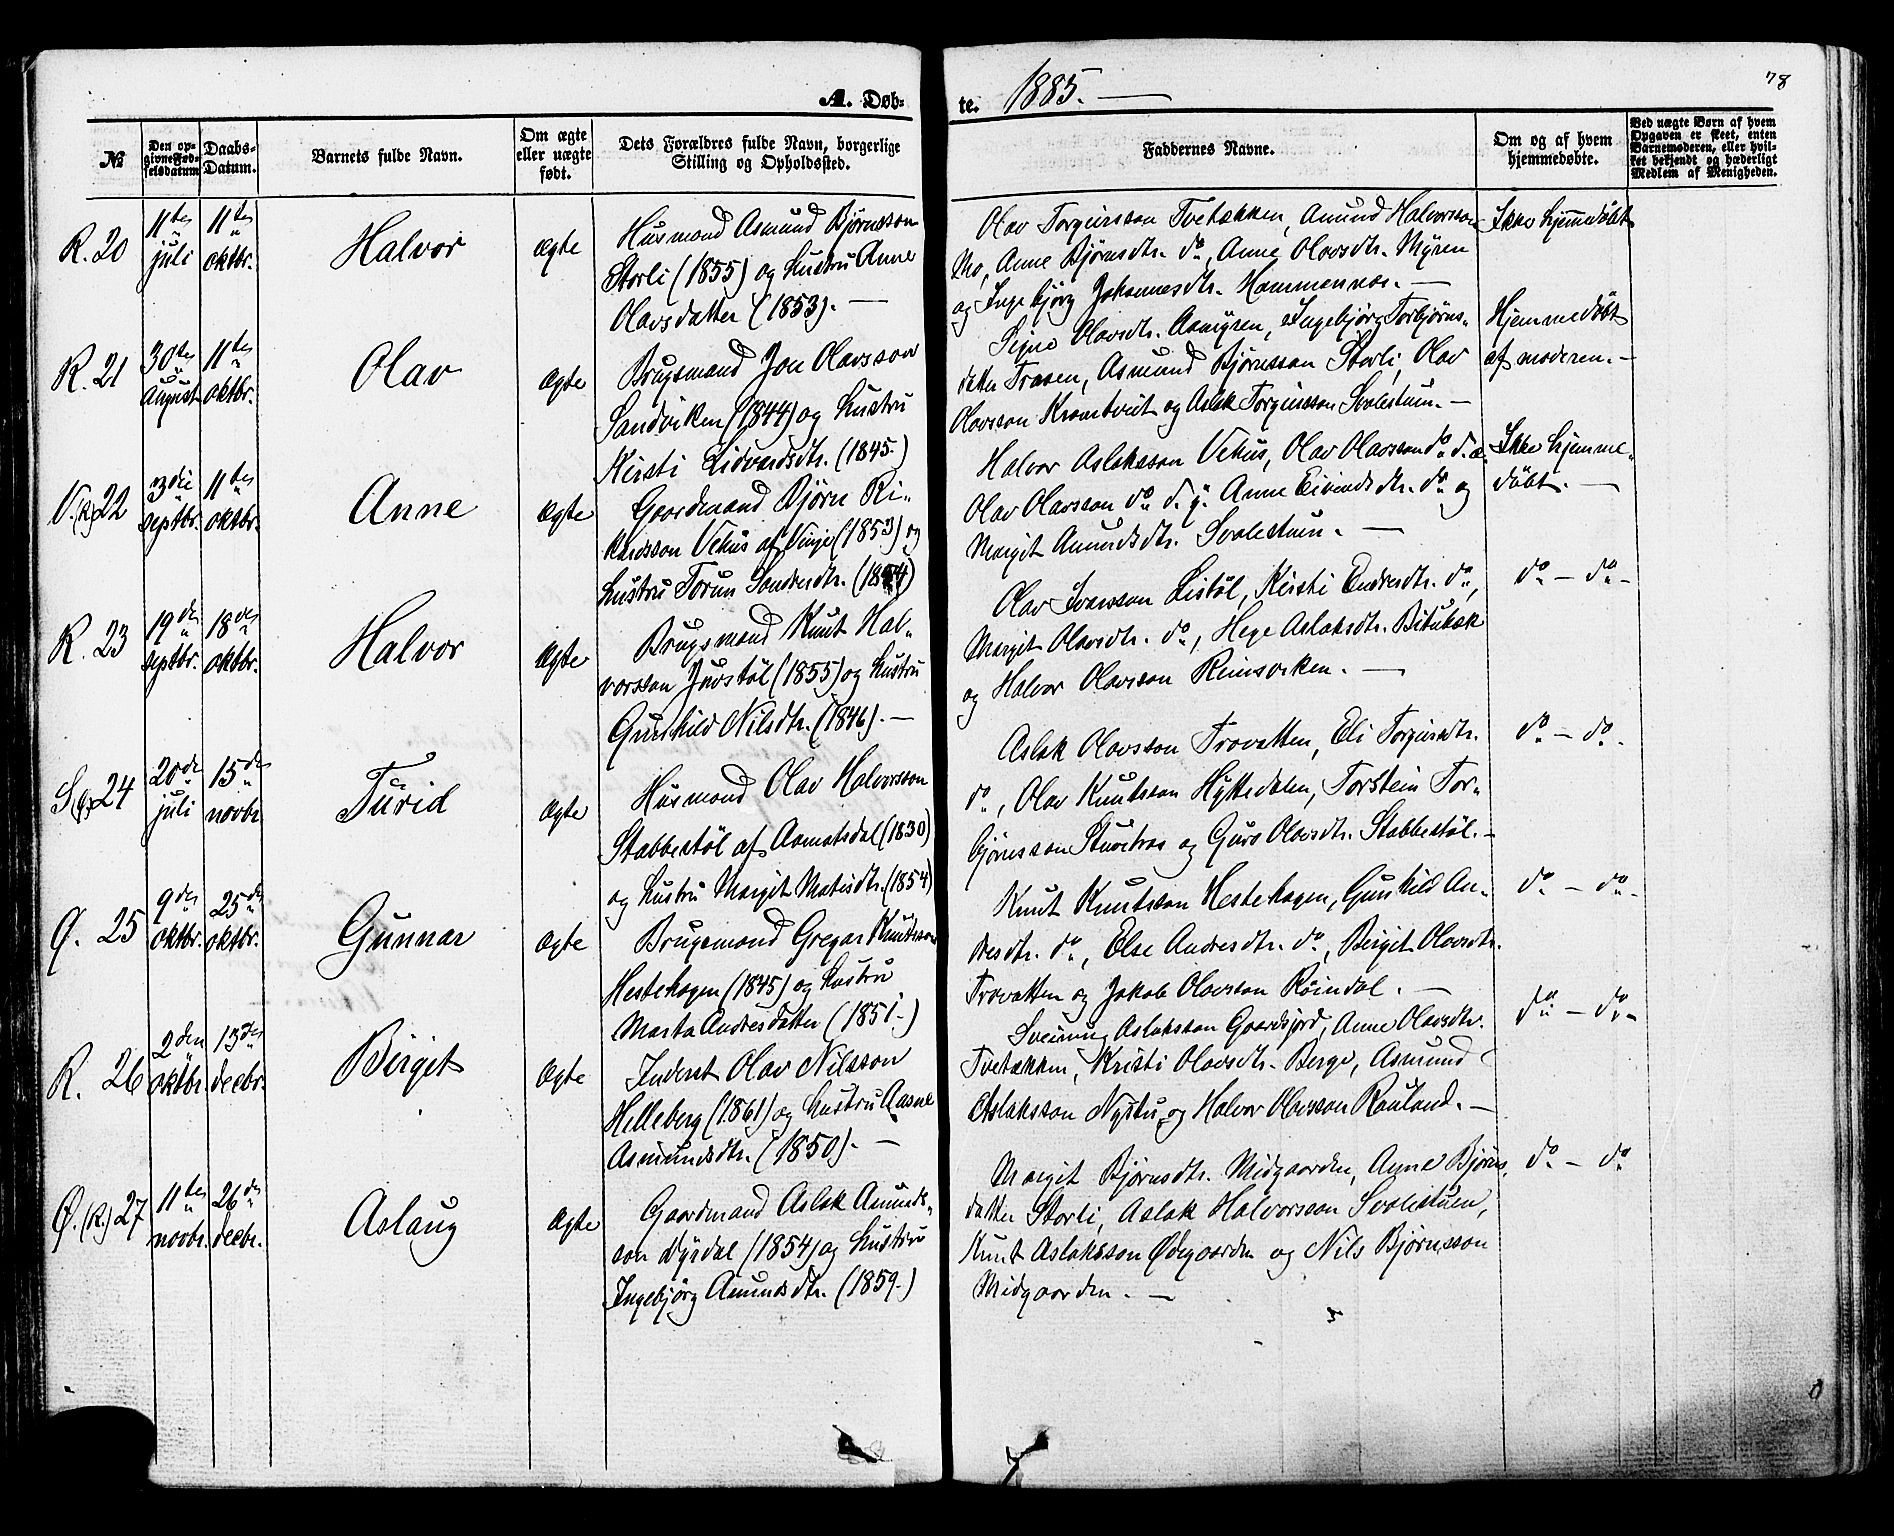 A. Døb-
te. 1885. —
78
№
Den op-
givne Fød-
selsdatum
Daabs-
Datum.
Barnets fulde Navn.
Om ægte
eller uægte
født.
Dets Forældres fulde Navn, borgerlige
Stilling og Opholdssted.
Faddernes Navne.
Om og af hvem
hjemmedøbte.
Ved uægte Børn af hvem
Opgaven er skeet, enten
Barnemoderen, eller hvil-
ket bekjendt og hæderligt
Medlem af Menigheden.
R. 20
11te
juli
11te
oktbr.
Halvor
ægte
Husmand Asmund Bjørnsson
Storli (1855) og hustru Anne
Olavsdatter (1853). —
Olav Torgiursson Tvetækken, Amund Halvorsson
Mo, Anne Bjørnsdtr. do, Anne Olavsdtr. Myren
og Ingebjørg Johannesdtr. Hammernæs. —
Ikke hjemmedøbt
R. 21
30te
August
11te
oktbr.
Olav
ægte
Brugsmand Jon Olavsson
Sandviken (1844) og hustru
Kirsti Lidvardsdtr. (1845.)
Signe Olavsdtr. Aamyren, Ingebjørg Torbjørns-
datter Træen, Asmund Bjørnsson Storli, Olav
Olavsson Kromtveit og Aslak Torgiursson Svalestuen. —
Hjemmedøbt
af moderen. —
V.(R) 22
3die
septbr.
11te
oktbr.
Anne
ægte
Gaardmand Bjørn Ri-
kardsson Vehus af Vinje (1853) og
hustru Torun Sondresdtr. (1854)
Halvor Aslaksson Vehus, Olav Olavsson do d. æ.
Olav Olavsson do d. y. Anne Eivindsdtr. do og
Margit Amundsdtr. Svalestuen. —
Ikke hjemme-
døbt. —
R. 23
19de
septbr.
18de
oktbr.
Halvor
ægte
Brugsmand Knut Hal-
vorsson Juvstøl (1855) og hustru
Gunhild Nilsdtr. (1846). —
Olav Ivarsson Listøl, Kirsti Endresdtr. do,
Margit Olavsdtr. do, Hege Aslaksdtr. Bitubæk
og Halvor Olavsson Rinisviken. —
do — do —
24
20de
juli
15de
novbr.
Turid
ægte
Husmand Olav Halvorsson
Stabbestøl af Aamotsdal (1830)
og hustru Margit Matisdtr. (1854)
Aslak Olavsson Trovatten, Eli Torgiursdtr.
do, Olav Knutsson Hyttedalen, Torstein Tor-
bjørnsson Stuvetræ og Guro Olavsdtr. Stabbestøl. —
do — do —
Ø. 25
9de
oktbr.
25de
oktbr.
Gunnar
ægte
Brugsmand Gregar Knutsson
Hestehagen (1845) og hustru
Marta Andresdatter (1851.)
Knut Knutsson Hestehagen, Gunhild An-
dresdtr. do, Else Andresdtr. do, Birgit Olavsdtr.
Trovatten og Jakob Olavsson Røindal. —
do — do —
R. 26
2den
oktbr.
13de
decbr.
Birgit
ægte
Inderst Olav Nilsson
Helleberg (1861) og hustru Aasne
Asmundsdtr. (1850). —
Sveinung Aslaksson Gaardsjord, Anne Olavsdtr.
Tvetækken, Kristi Olavsdtr. Berge, Asmund
Aslaksson Nystu, og Halvor Olavsson Rauland. —
do — do —
Ø. (R.) 27
11te
novbr.
26de
decbr.
Aslaug
ægte
Gaardmand Aslak Amunds-
son Dyrdal (1854) og hustru
Ingebjørg Amundsdtr. (1859.)
Margit Bjørnsdtr. Midgaarden, Anne Bjørns-
datter Storli, Aslak Halvorsson Svalestuen,
Knut Aslaksson Ødegaarden og Nils Bjørnsson
Midgaarden. —
do — do